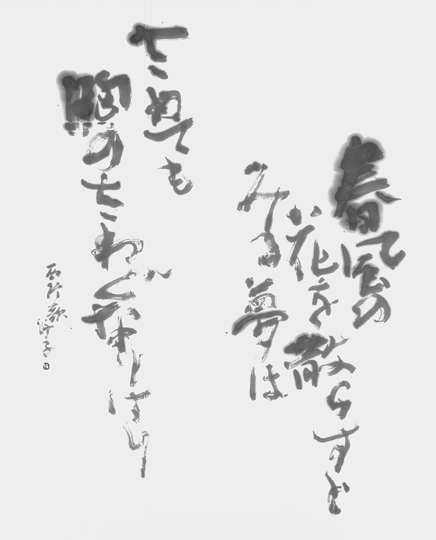 春風の
花を散らすと
みる夢は
さめても
胸のさわぐなりけり
西行歌